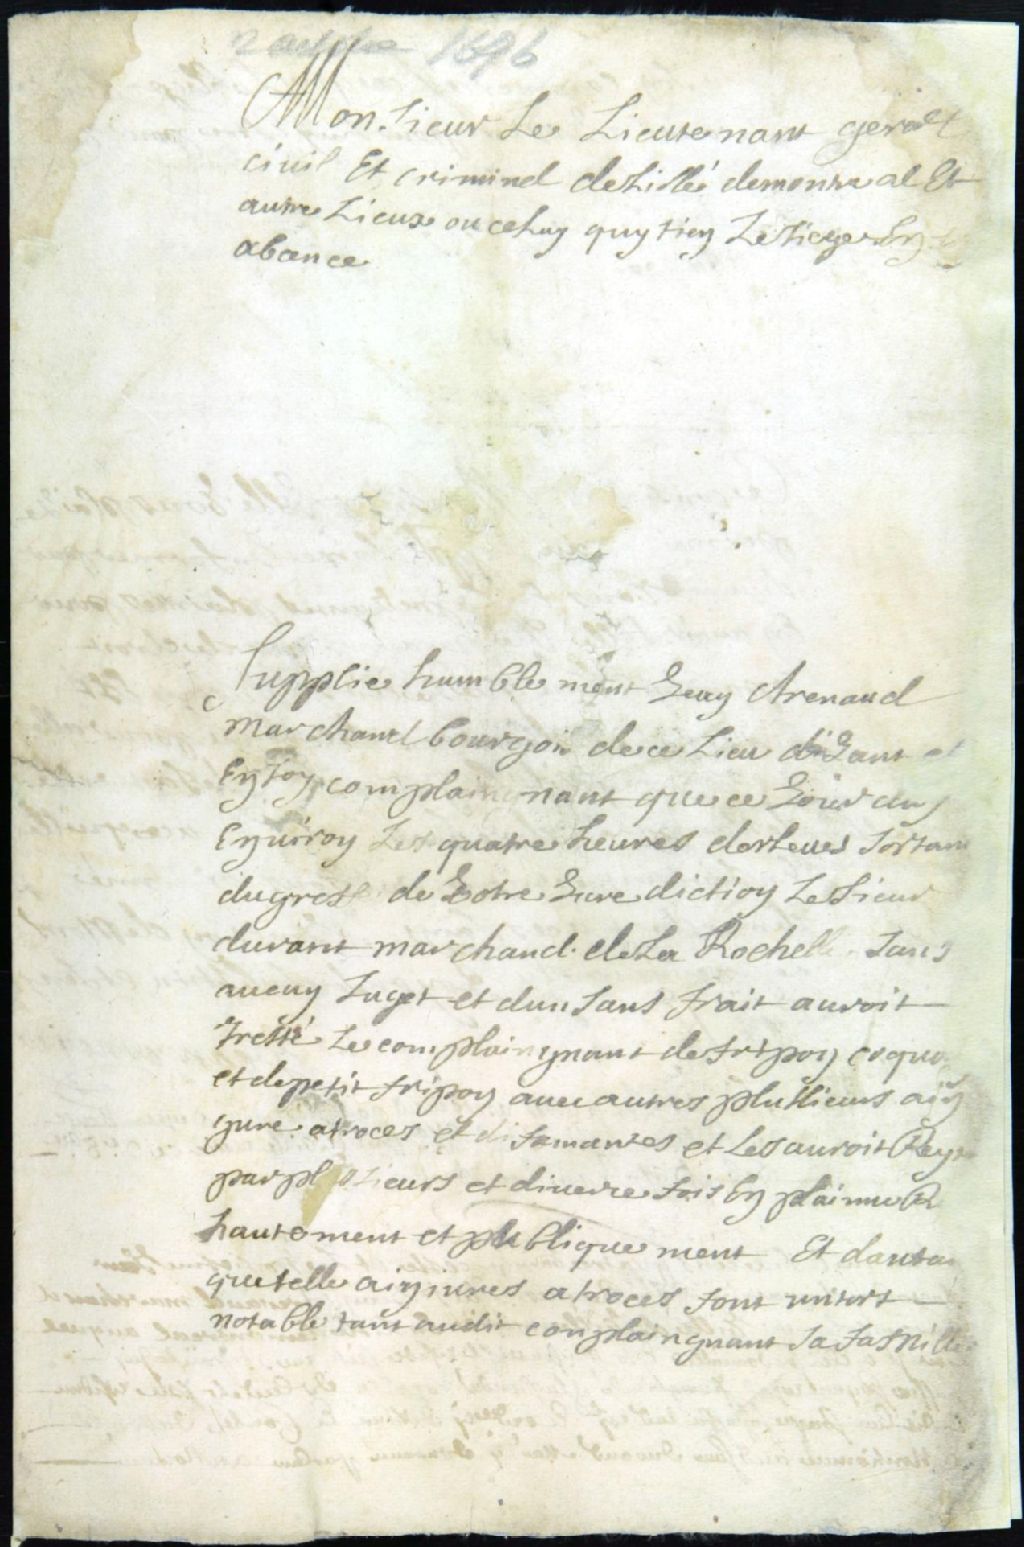 1696
Monsieur Le Lieutenant geral
civil Et criminel de Lislle de monreal Et
autre Lieux ou celuy quy tien Le siege En
absence
Supplie humblement Arenaud
marchand bourgois de ce Lieu disant et
complaingnant que ce
Enuiron Les quatre heures sortant
du greffe de Jure diction Le sieur
durant marchand de La Rochelle sans
aucun suget et d'un sans frait auroit
tretté Le complaingnant de fripon coqu
et de petit fripon auec autres plussieurs aiy
gure atroces et difamantes et Les auroit
par plusieurs et diuerse fois En plainne
hautement et publiquement Et dauta
que telle aigiures atroces sont un tort
notable tant audit complaingnant sa famille